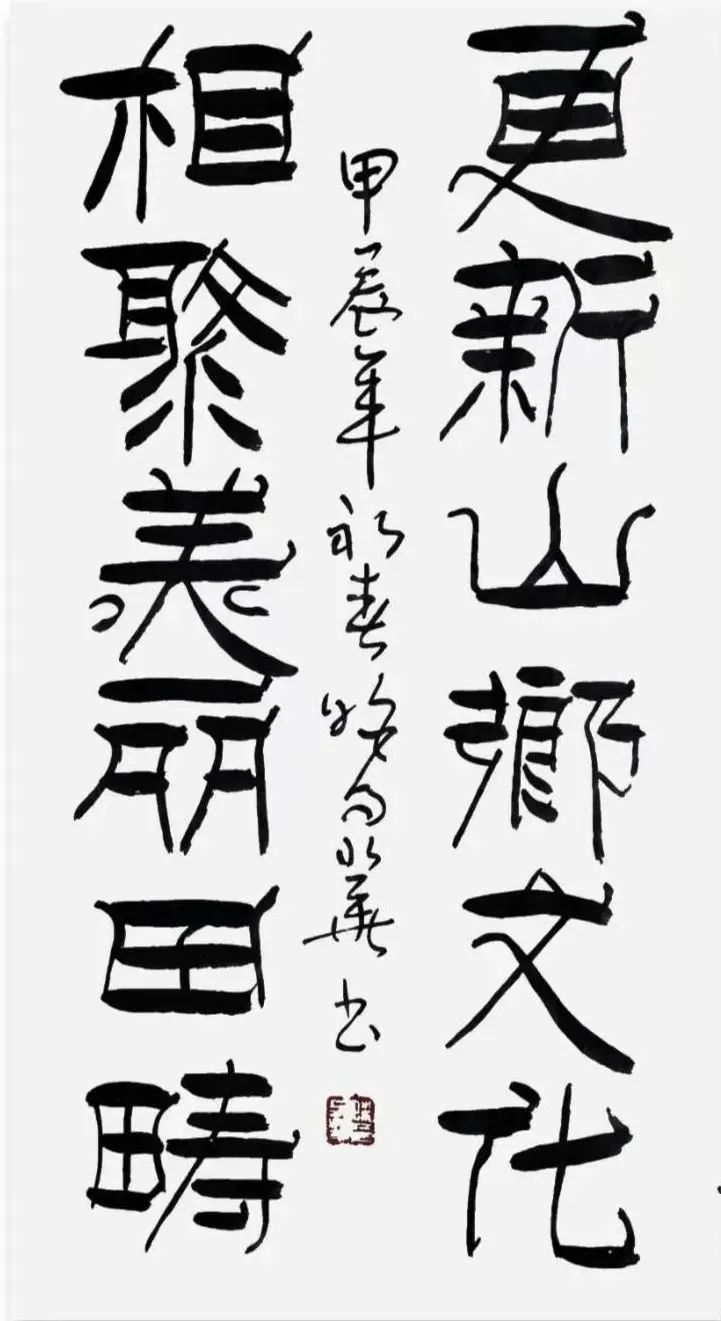 更新山鄉文化
甲辰年初春 书
相聚美丽田畴